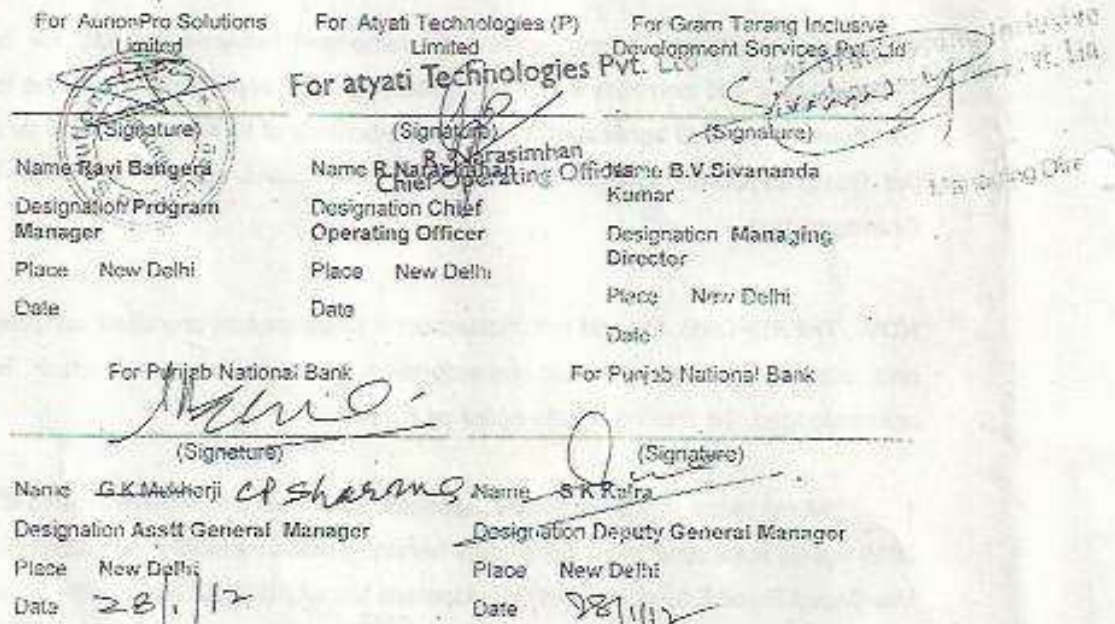 For AurionPro Solutions
Limited
(Signature)
Name Ravi Bangera
Designation Program
Manager
Place New Delhi
Date
For Atyati Technologies (P)
Limited
For atyati Technologies Pvt. Ltd
(Signature)
R. Narasimhan
Name R.Narasimhan
Chief Operating Officer
Designation Chief
Operating Officer
Place New Delhi
Date
For Gram Tarang Inclusive
Development Services Pvt. Ltd
Inclusive
Pvt. Ltd
(Signature)
Name B.V.Sivananda
Kumar
Managing Dire
Designation Managing
Director
Place New Delhi
Date
For Punjab National Bank
(Signature)
Name G.K Mukherji CP Sharma
Designation Asstt General Manager
Place New Delhi
Date 28/1/12
For Punjab National Bank
(Signature)
Name S K Kalra
Designation Deputy General Manager
Place New Delhi
Date 28/1/12